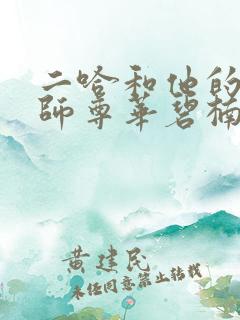 二哈和他的
師尊華碧楠
黄建民
未经同意禁止转载